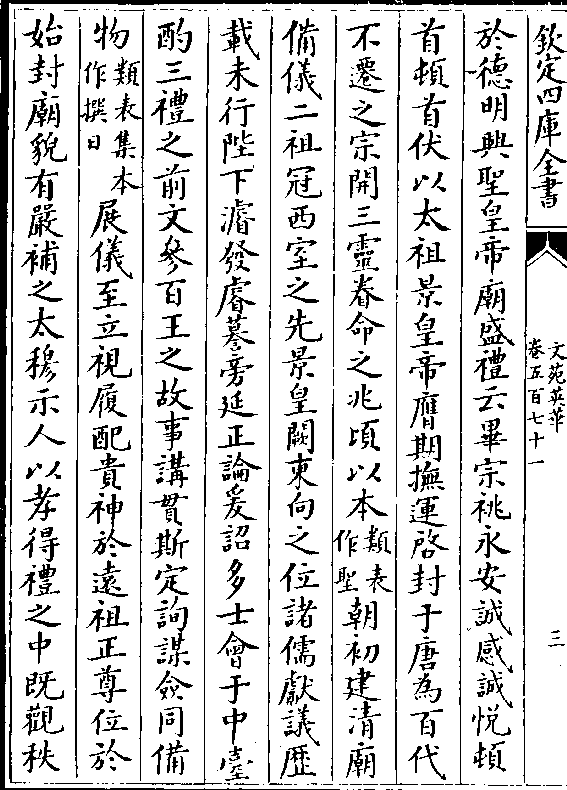 欽定四庫全書
文苑英華
卷五百七十一
三
於德明興聖皇帝廟盛禮云畢宗祧永安誠感誠悅頓
首頓首伏以太祖景皇帝膺期撫運啓封于唐為百代
不遷之宗開三靈眷命之兆頃以本類表作聖朝初建清廟
備儀二祖冠西室之先景皇闕東向之位諸儒獻議歴
載未行陛下濬發睿謩旁延正論爰詔多士會于中臺
酌三禮之前文參百王之故事講貫斯定詢謀僉同備
物類表集本作撰日展儀至立視履配貴神於遠祖正尊位於
始封廟貌有嚴補之太穆示人以孝得禮之中既觀秩